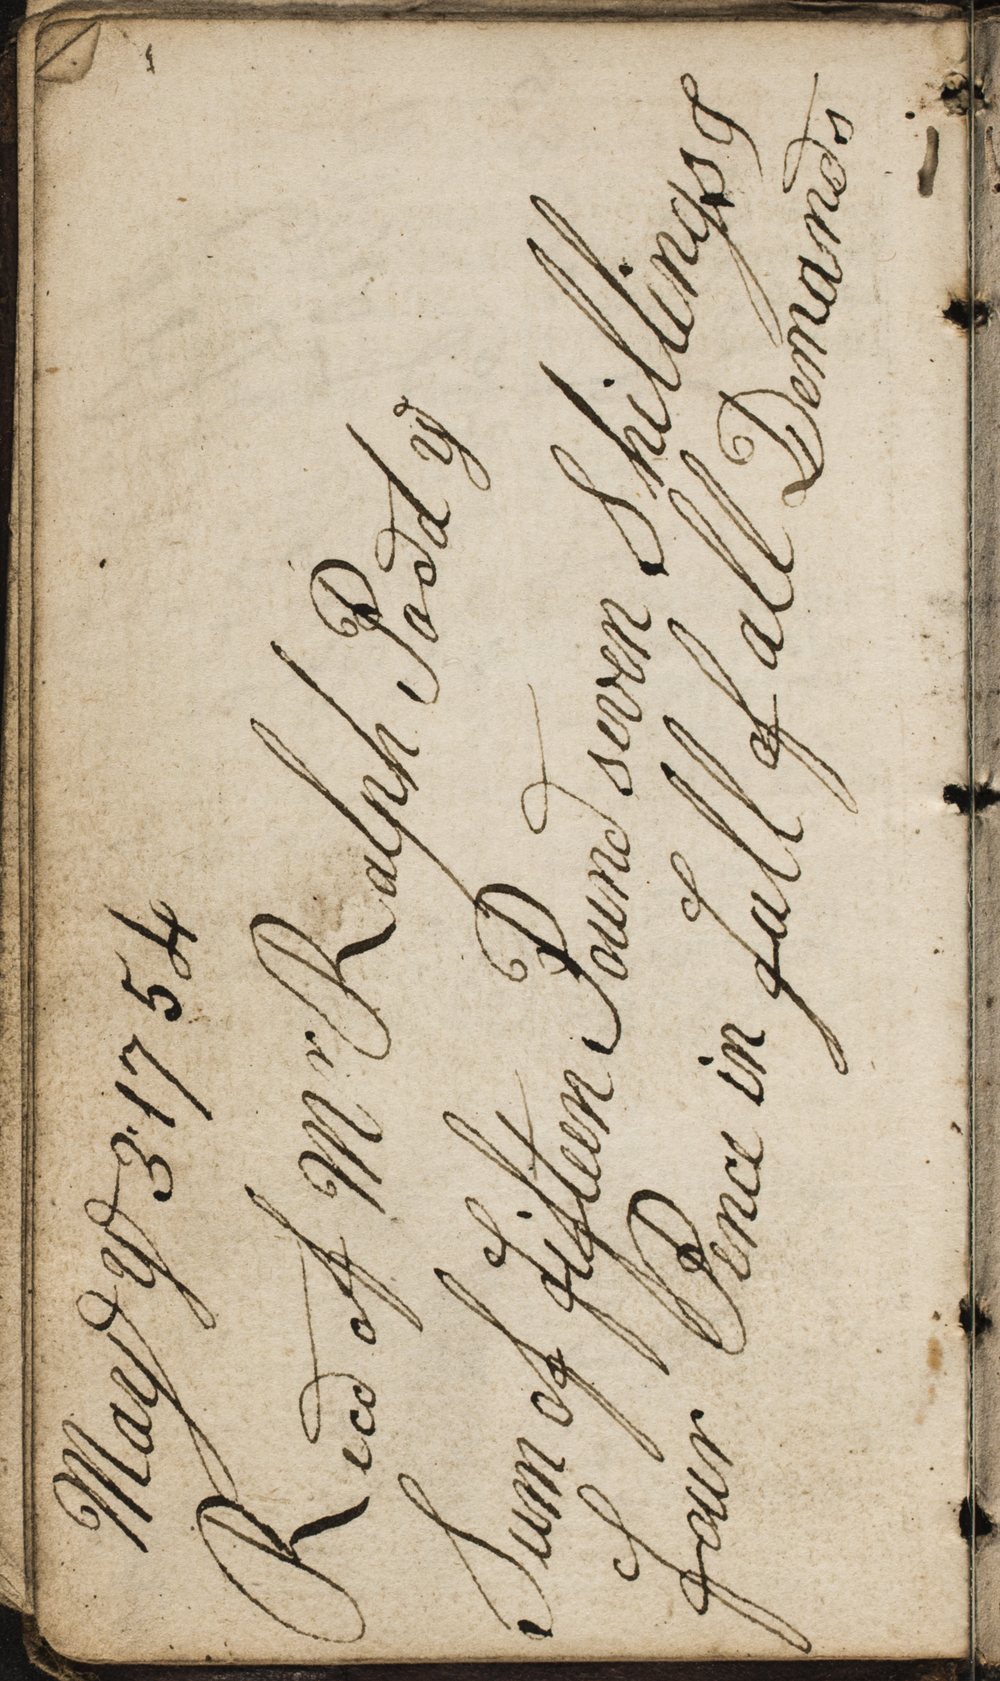 May ye 3. 1754
Recd of Mr Ralph Podd ye
Sum of fifteen Pound seven Shillings &
four Pence in full of all Demands